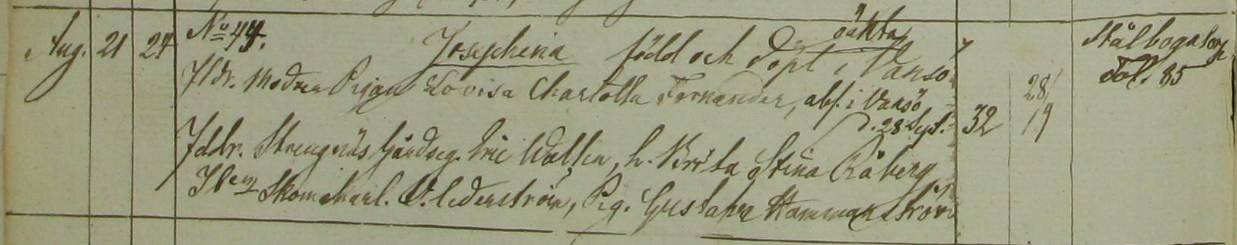 Aug. 21 24 No 44.
oäkta
Josephina född och döpt i Vansö
Fldr. Modren Pigan Lovisa Charlotta Fernander, abs. i Vansö
d. 28 Sept. 32 28/19
Stålboga
Fol. 85
Fddr. Strengnäs Gårdseg. Eric Wallin, h. Brita Stina Råberg
Skomakarl. O. Cederström, Pig. Gustafva Hammarström